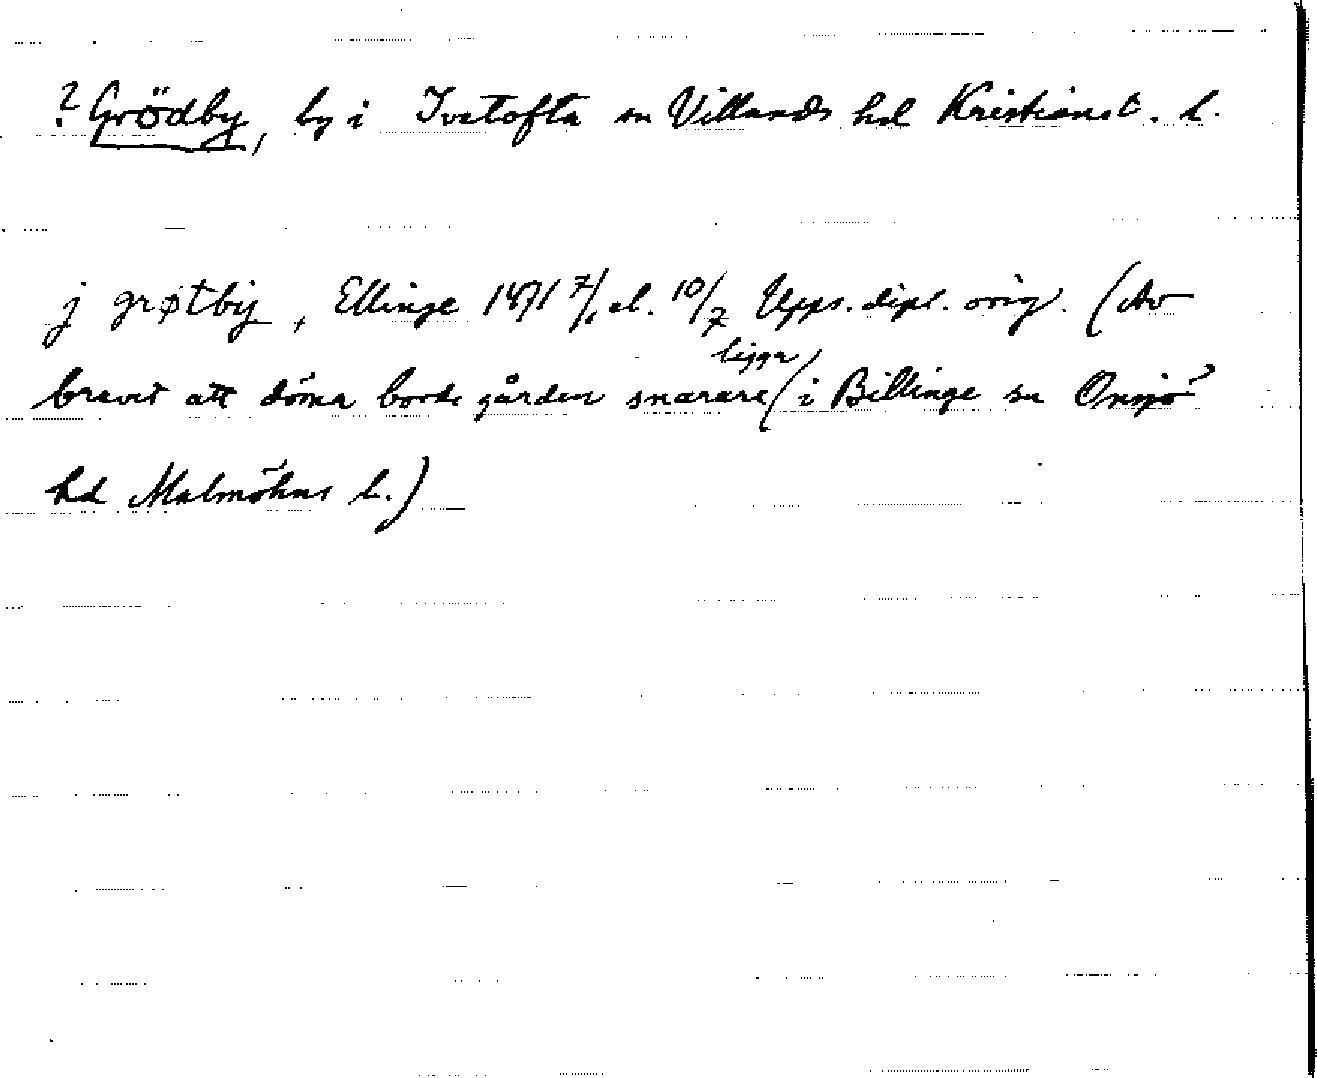 ? Grödby, by i Ivetofta sn Villands hd Kristianst. l.
j grøtby, Ellinge 1471 7/1 el. 10/7 Upps. dipl. orig. (Av
brevet att döma borde gården snarare ligga i Billinge sn Onsjö
hd Malmöhus l.)